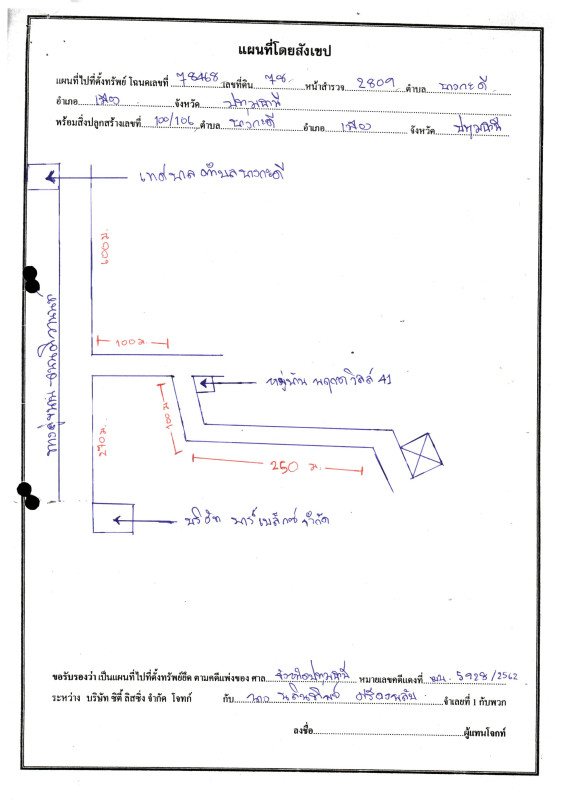 แผนที่โดยสังเขป
แผนที่ไปที่ตั้งทรัพย์ โฉนดเลขที่ 78468 เลขที่ดิน 78 หน้าสำรวจ 2809 ตำบล บางกะดี
อำเภอ เมือง จังหวัด ปทุมธานี
พร้อมสิ่งปลูกสร้างเลขที่ 100/106 ตำบล บางกะดี อำเภอ เมือง จังหวัด ปทุมธานี
เทศบาล ตำบลบางกะดี
600 ม.
100 ม.
หมู่บ้าน พฤกษาวิลล์ 41
100 ม.
270 ม.
250 ม.
บริษัท
จำกัด
ขอรับรองว่า เป็นแผนที่ไปที่ตั้งทรัพย์ยึด ตามคดีแพ่งของ ศาล จังหวัดปทุมธานี หมายเลขคดีแดงที่ 5928/2562
ระหว่าง บริษัท ซิตี้ ลิสซิ่ง จำกัด โจทก์ กับ จำเลยที่ 1 กับพวก
ลงชื่อ ผู้แทนโจทก์